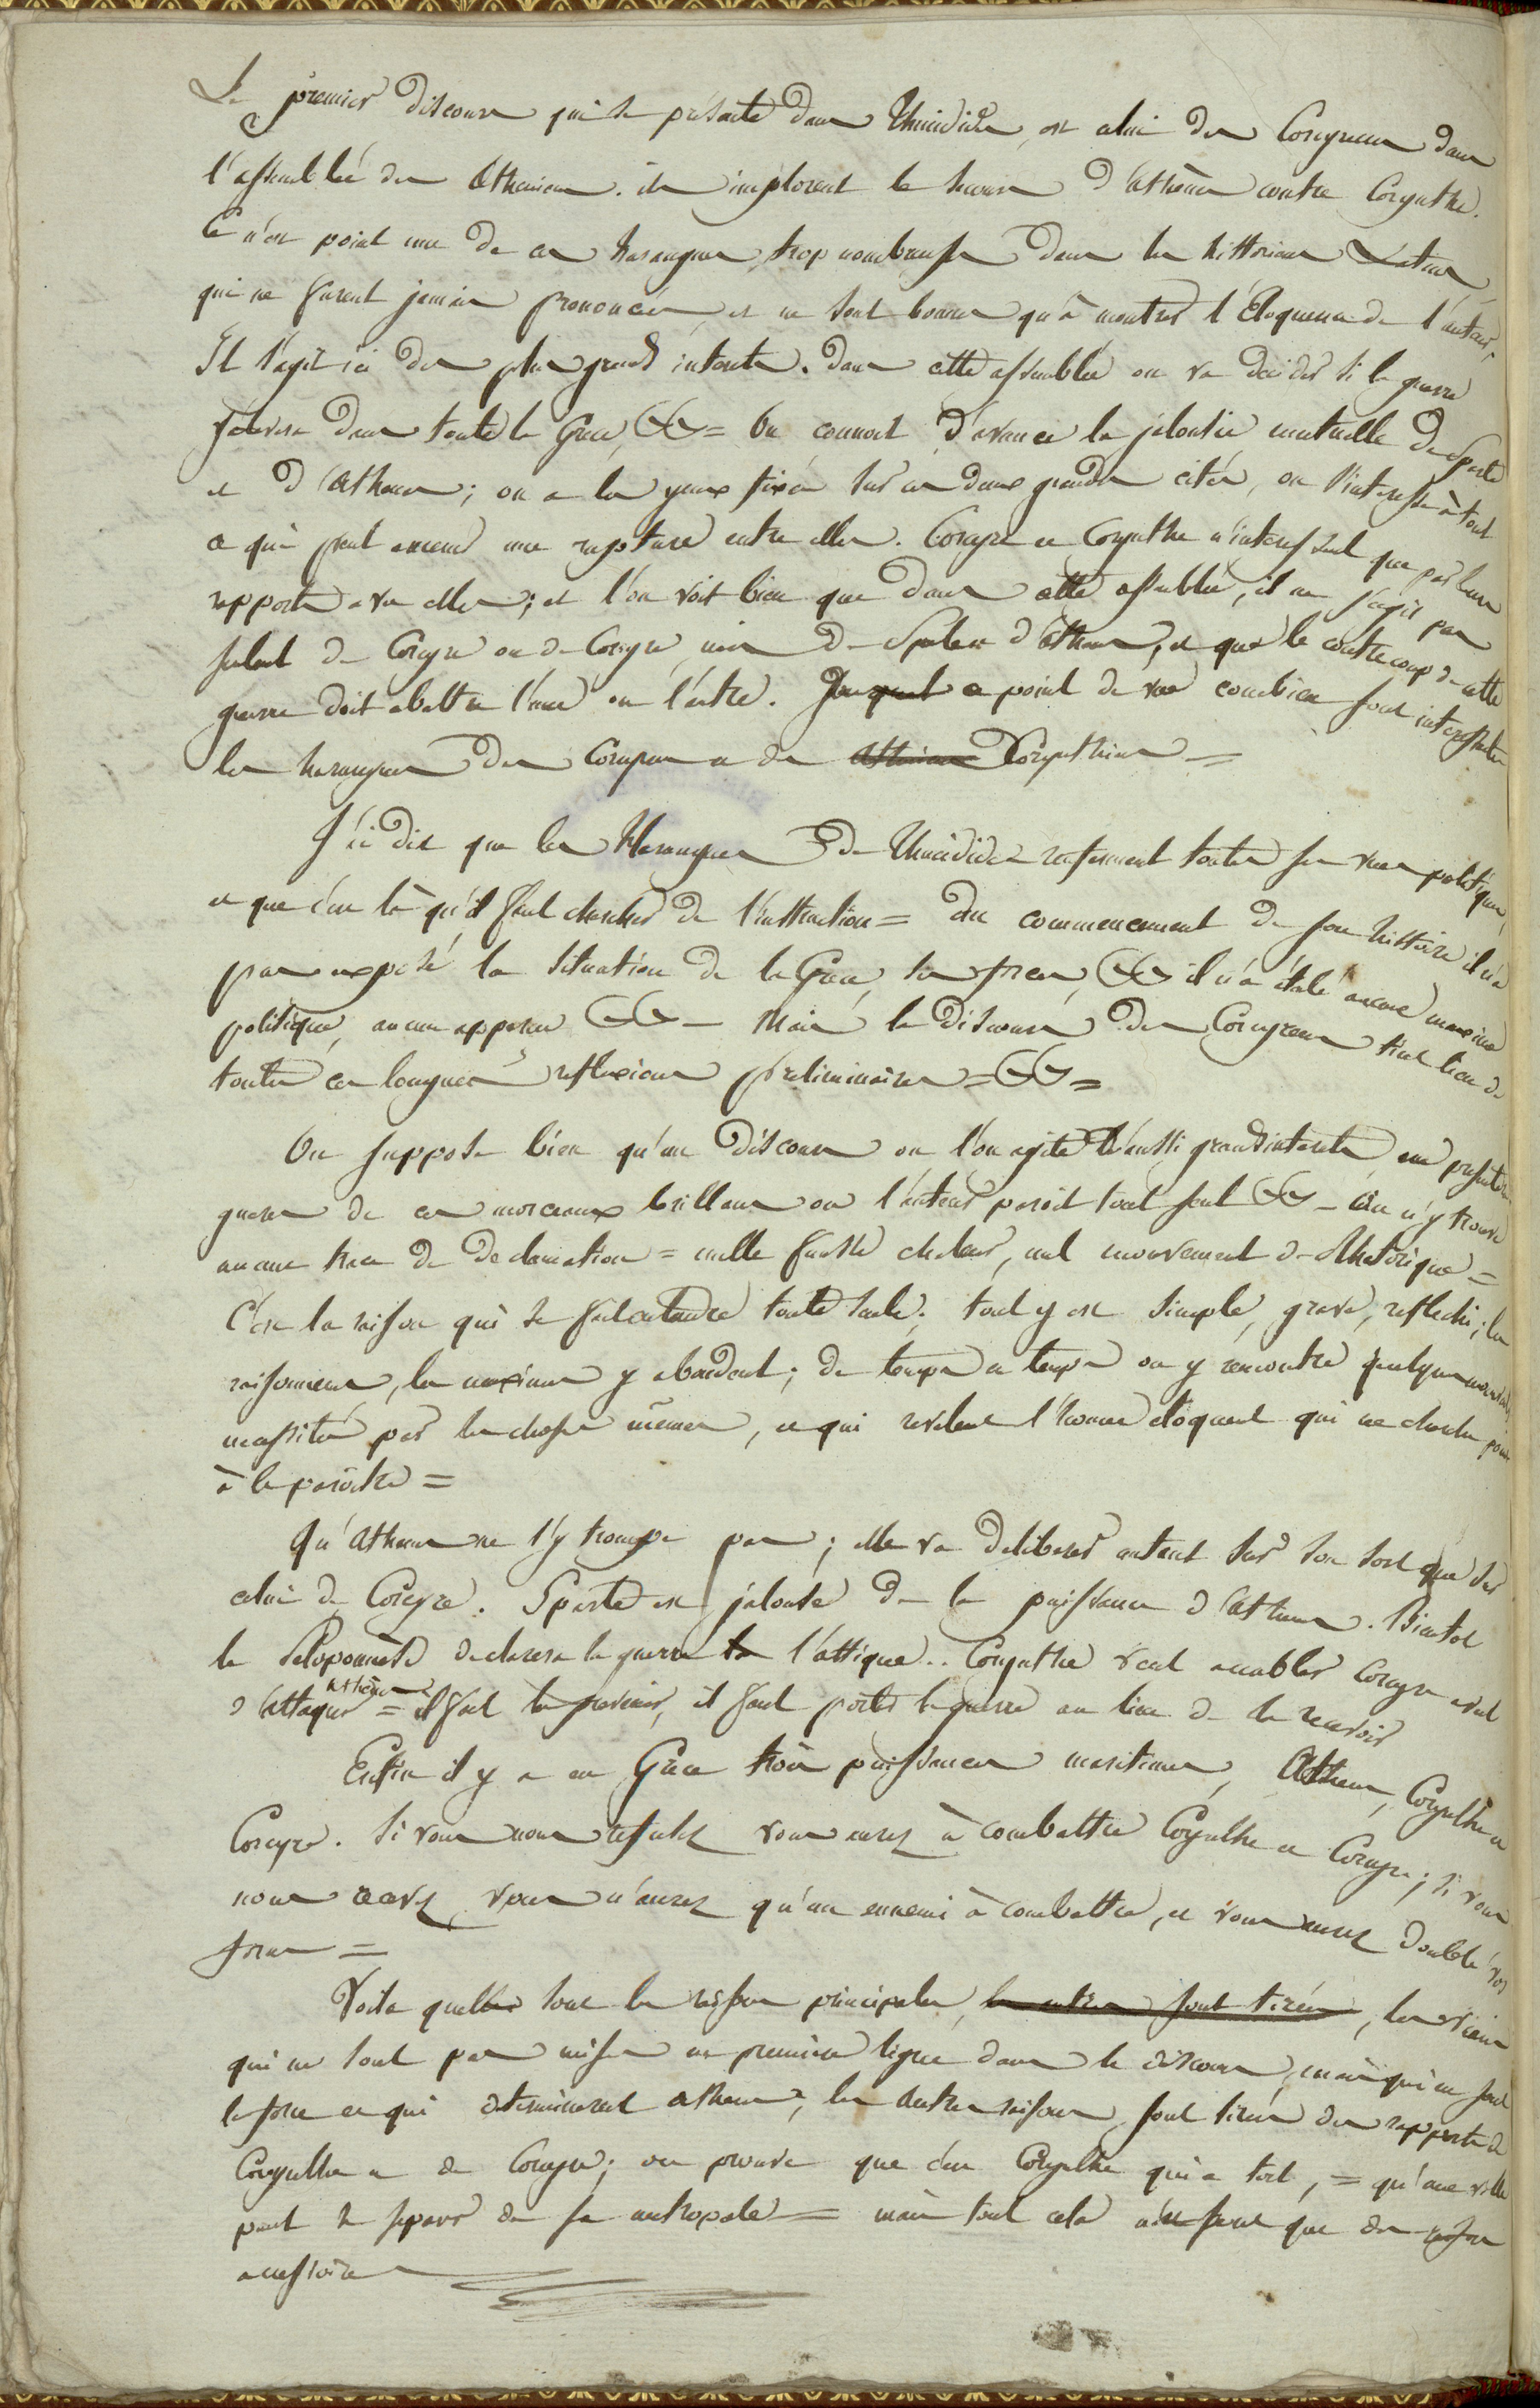 Le premier discours qui se présente dans Thucidide, est celui des Corcyreens dans
l'assemblée des Atheniens. ils implorent le secours d'Athènes contre Corynthe.
Ce n'est point une de ces harangues trop nombreuses dans les historiens Latins,
qui ne furent jamais prononcées, et ne sont bonnes qu'à montrer l'Eloquence de l'auteur,
Il s'agit ici des plus grands interets. dans cette assemblée on va decider si la guerre
sera dans toute la Grece, &&= On connoit d'avance la jalousie mutuelle de Sparte
et d'Athenes; on a les yeux fixés sur ces deux grandes cités, on s'interesse à tout
ce qui peut amener une rupture entre elles. Corcyre et Corynthe n'interessent que par leurs
rapports avec elles; et l'on voit bien que dans cette assemblée, il ne s'agit pas
seulement de Corcyre ou de Corcyre, mais de Sparte et d'Athenes, et que le contrecoup de cette
guerre doit abattre l'une ou l'autre. ce point de vue combien sont interessantes
les harangues des Corcyreens et des Atheniens Corynthiens =
J'ai dit que les Harangues de Thucidides renferment toutes ses vues politiques,
et que c'est là qu'il faut chercher de l'instruction = au commencement de son histoire il n'a
pas exposé la situation de la Grece, ses forces, && il n'a étalé aucune maxime
politique, aucun apperçu && - Mais le discours des Corcyreens tient lieu de
toutes ces longues reflexions preliminaires = && =
On suppose bien qu'un discours ou l'on agite d'aussi grands interets, ne presentera
gueres de ces morceaux brillans ou l'auteur paroit tout seul && - On n'y trouve
aucune trace de declamation = nulle fausse chaleur, nul mouvement de Rhetorique =
C'est la raison qui se fait entendre toute seule; tout y est simple, grave, reflechi; les
raisonnemens, les maximes y abondent; de temps en temps on y rencontre quelques mouvemens
necessités par les choses mêmes, et qui revelent l'homme éloquent qui ne cherche point
à le paroitre =
Qu'Athenes ne s'y trompe pas; elle va deliberer autant sur son sort que sur
celui de Corcyre. Sparte est jalouse de la puissance d'Athenes. Bientot
le Peloponnèse declarera la guerre à l'attique.. Corynthe veut accabler Corcyre avant
d'attaquer Athènes = il faut la prevenir, il faut porter la guerre au lieu de la recevoir
Enfin il y a en Grece trois puissances maritimes, Athenes, Corynthe et
Corcyre. Si vous nous refusez vous aurez à combattre Corynthe et Corcyre; si vous
nous recevez, vous n'aurez qu'un ennemi à combattre, et vous aurez doublé vos
forces =
Voila quelles sont les raisons principales, les autres sont tirées, les raisons
qui ne sont pas mises en premiere ligne dans le discours, mais qui en font
la force et qui determinerent Athenes, les autres raisons sont tirées des rapports de
Corynthe et de Corcyre; on prouve que c'est Corynthe qui a tort, = qu'une ville
peut se separer de sa metropole = mais tout cela que des raisons
accessoires